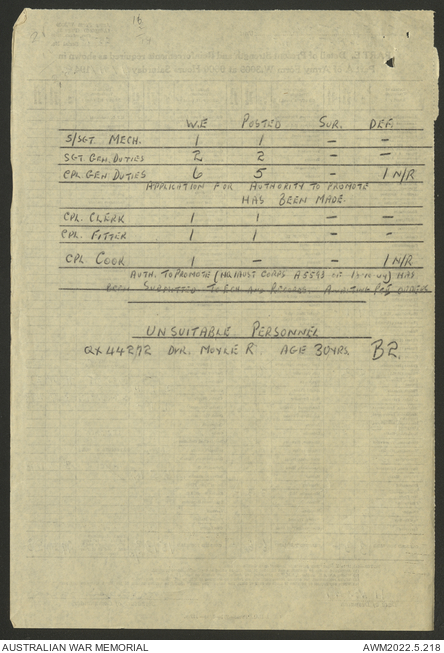 W.E POSTED SUR. DEF.
S/SGT. MECH. 1 1 – –
SGT GEN. DUTIES 2 2 – –
CPL GEN. DUTIES 6 5 – 1 N/R
APPLICATION FOR AUTHORITY TO PROMOTE
HAS BEEN MADE.
CPL CLERK 1 1 – –
CPL. FITTER 1 1 – –
CPL COOK 1 – – 1 N/R
AUTH. TO PROMOTE ( AUST CORPS HAS
BEEN SUBMITTED TO ECH AND RECORDS. AWAITING
UNSUITABLE PERSONNEL
QX44272 DVR. MOYLE R AGE 30YRS. B2.
AUSTRALIAN WAR MEMORIAL AWM2022.5.218